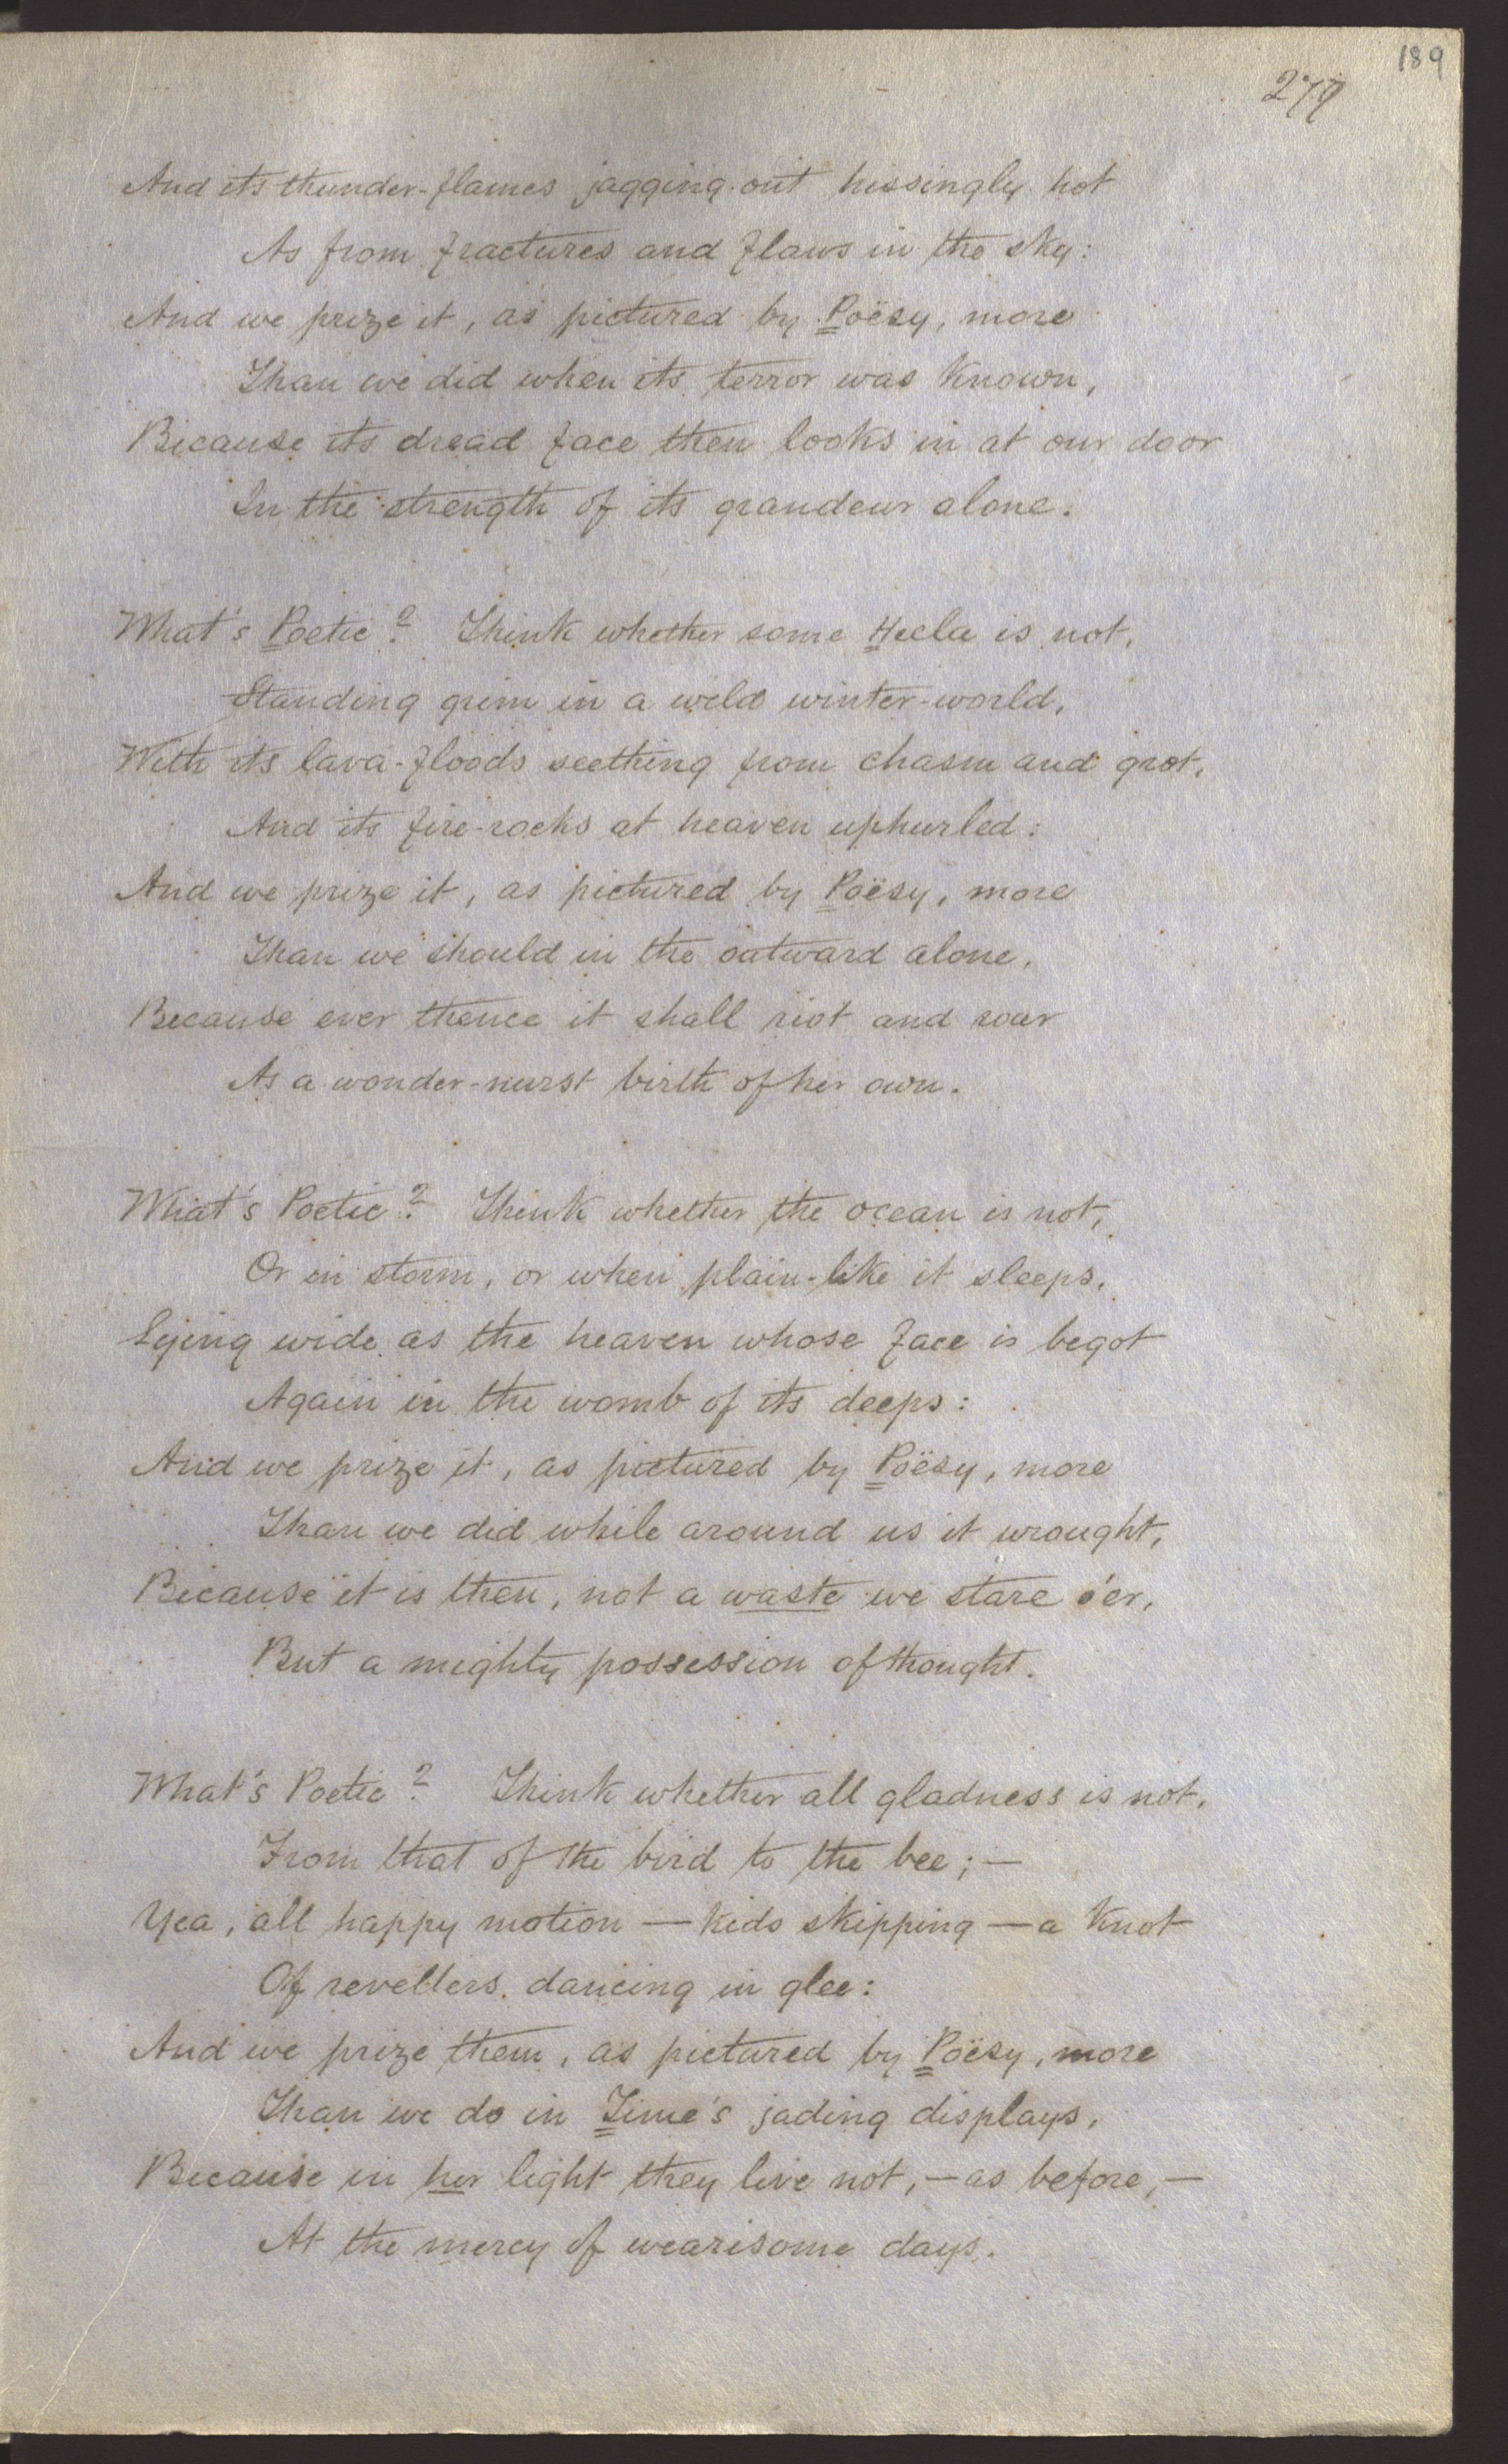 189
279
And its thunder-flames jagging-out hissingly hot
As from fractures and flaws in the sky:
And we prize it, as pictured by Poësy, more
Than we did when its terror was known,
Because its dread face then looks in at our door
In the strength of its grandeur alone.
What's Poetic? Think whether some Hecla is not,
Standing grim in a wild winter-world,
With its lava-floods seething from chasm and grot,
And its fire-rocks at heaven uphurled:
And we prize it, as pictured by Poësy, more
Than we should in the outward alone,
Because ever thence it shall riot and roar
As a wonder-nurst birth of her own.
What's Poetic? Think whether the ocean is not,
Or in storm, or when plain-like it sleeps,
Lying wide as the heaven whose face is begot
Again in the womb of its deeps:
And we prize it, as pictured by Poësy, more
Than we did while around us it wrought,
Because it is then, not a waste we stare o'er,
But a mighty possession of thought.
What's Poetic? Think whether all gladness is not,
From that of the bird to the bee;—
Yea, all happy motion — kids skipping — a knot
Of revellers dancing in glee:
And we prize them, as pictured by Poësy, more
Than we do in Time's jading displays,
Because in her light they live not,— as before,—
At the mercy of wearisome days.